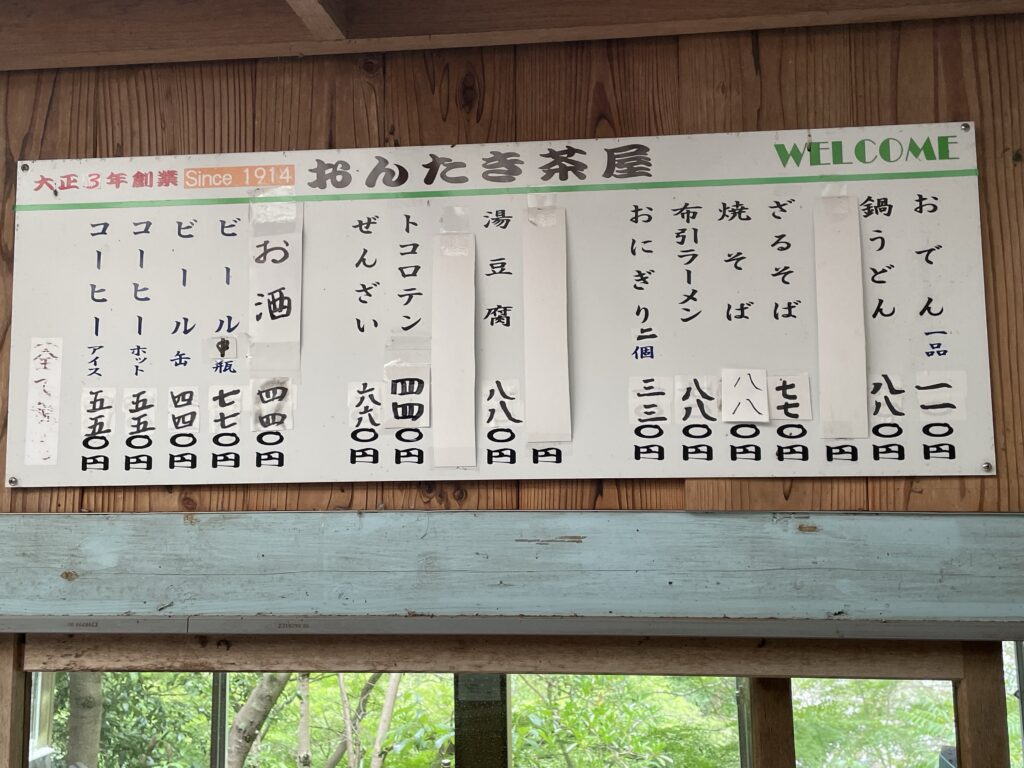 大正3年創業 Since 1914 おんたき茶屋 WELCOME
おでん一品 一一〇円
鍋うどん 八八〇円
円
ざるそば 七七〇円
焼そば 八八〇円
布引ラーメン 八八〇円
おにぎり二個 三三〇円
円
湯豆腐 八八〇円
トコロテン 四四〇円
ぜんざい 六六〇円
お酒 四四〇円
ビール中瓶 七七〇円
ビール缶 四四〇円
コーヒーホット 五五〇円
コーヒーアイス 五五〇円